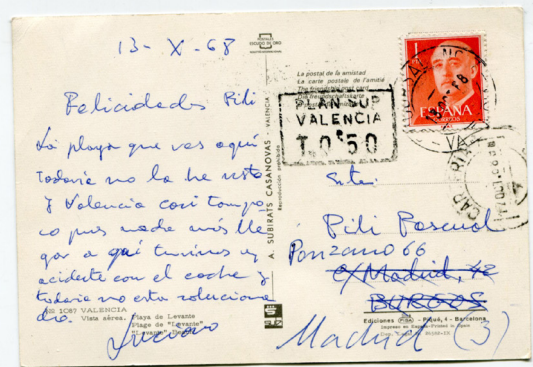 13-X-68
Felicidades Pili
La playa que ves aquí
todavía no la he visto
y Valencia casi tampo-
co pues nada más lle-
gar a aquí tuvimos un
accidente con el coche y
todavía no esta soluciona-
do.
Luciano
Nº 1087 VALENCIA
Vista aérea. Playa de Levante
Plage de "Levante"
"Levante"
A. SUBIRATS CASANOVAS - VALENCIA
La postal de la amistad
La carte postale de l'amitié
The friendship post card
PLAN SUR
VALENCIA
T. 0'50
1
ESPAÑA
CORREOS
Srta:
Pili Pascual
Ponzano 66
c/ Madrid, 42
BURGOS
Madrid (3)
Ediciones PISA - Piqué, 4 - Barcelona
Impreso en España-Printed in Spain